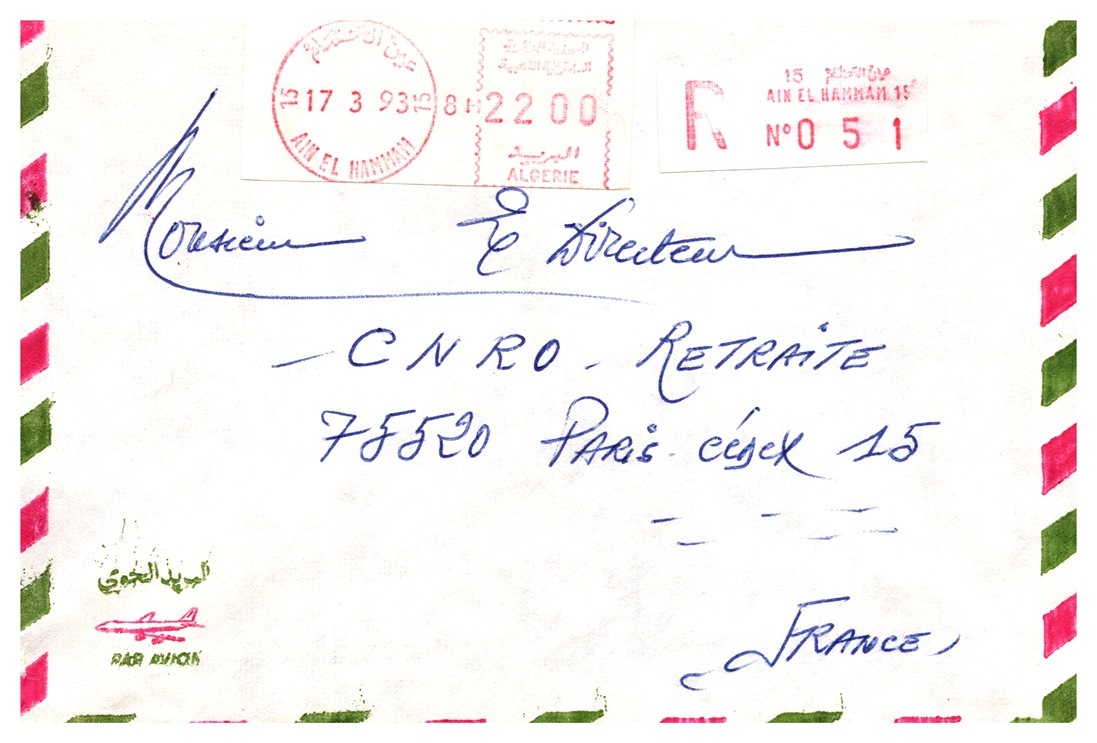 عين الحمام
15 17 3 93 15 8 H
AIN EL HAMMAM
2200
البريد
ALGERIE
R
15 عين الحمام
AIN EL HAMMAM 15
N° 051
Monsieur Le Directeur
- CNRO - RETRAITE
75520 PARIS cédex 15
FRANCE
البريد الجوي
PAR AVION